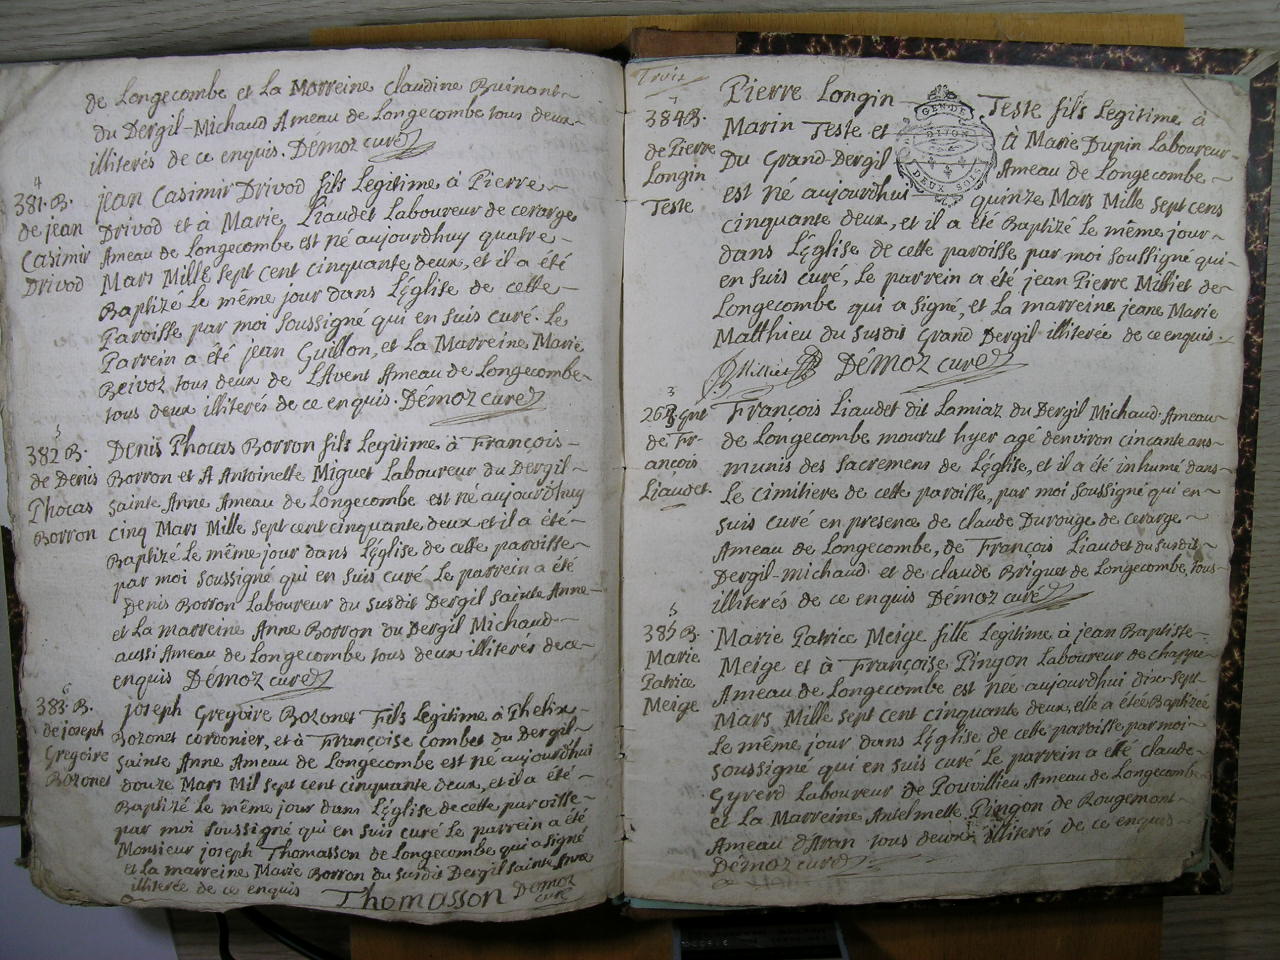 de Longecombe et La Marreine Claudine Buinant~
du Dergil-Michaud Ameau de Longecombe tous deux~
illiterés de ce enquis. Démoz curé
4
381. B.
de jean
Casimir
Drivod
jean Casimir Drivod fils Legitime à Pierre~
Drivod et à Marie Liaudet Laboureur de cerarge
Ameau de Longecombe est né aujourdhuy quatre~
Mars Mille sept cent cinquante deux, et il a été
Baptizé Le même jour dans L'église de cette~
Paroisse par moi soussigné qui en suis curé. Le
Parrein a été jean Guillon, et La Marreine Marie
Beivoz tous deux de L'Avent Ameau de Longecombe~
tous deux illiterés de ce enquis. Démoz curé
5
382 B.
de Denis
Phocas
Borron
Denis Phocas Borron fils Legitime à François~
Borron et A Antoinette Miguet Laboureur du Dergil~
Sainte Anne Ameau de Longecombe est né aujourdhuy
cinq Mars Mille sept cent cinquante deux et il a été~
Baptizé Le même jour dans L'église de cette paroisse~
par moi soussigné qui en suis curé Le parrein a été
Denis Borron Laboureur du susdit Dergil Sainte Anne~
et La marreine Anne Borron du Dergil Michaud~
aussi Ameau de Longecombe tous deux illiterés de ce~
enquis Démoz curé
6
383. B.
de joseph
Gregoire
Bozonet
joseph Gregoire Bozonet Fils Legitime à Phelix~
Bozonet cordonier, et à Françoise Combet du Dergil~
Sainte Anne Ameau de Longecombe est né aujourdhui
douze Mars Mil sept cent cinquante deux, et il a été~
Baptizé Le même jour dans L'église de cette paroisse~
par moi soussigné qui en suis curé Le parrein a été
Monsieur joseph Thomasson de Longecombe qui a signé
et La marreine Marie Borron du susdit Dergil Sainte Anne
illiterée de ce enquis Thomasson Démoz
curé
Trois
384 B.
de Pierre
Longin
Teste
Pierre Longin Teste fils Legitime à
Marin Teste et à Marie Dupin Laboureur~
Du Grand Dergil Ameau de Longecombe~
est né aujourdhui quinze Mars Mille sept cens
cinquante deux, et il a été Baptizé Le même jour~
dans L'église de cette paroisse par moi soussigné qui~
en suis curé, Le parrein a été jean Pierre Milliet de
Longecombe qui a signé, et La marreine jeane Marie
Matthieu du susdit Grand Dergil illiterée de ce enquis.
GEN. DE
DIJON
DEUX SOLS
Milliet Démoz curé
3
26
de Fr-
ançois
Liaudet.
François Liaudet dit Lamiaz du Dergil Michaud Ameau~
de Longecombe mourut hyer agé denviron cincante ans~
munis des Sacremens de L'église, et il a été inhumé dans~
Le cimitiere de cette paroisse, par moi soussigné qui en~
suis curé en presence de claude Durouge de cerarge~
Ameau de Longecombe, de François Liaudet du susdit~
Dergil-michaud et de claude Briguet de Longecombe, tous~
illiterés de ce enquis Démoz curé
5
385 B.
Marie
Patrice
Meige
Marie Patrice Meige fille Legitime à jean Baptiste~
Meige et à Françoise Pingon Laboureur de chappe~
Ameau de Longecombe est née aujourdhui dix-sept~
Mars Mille sept cent cinquante deux, elle a étée Baptizée
Le même jour dans L'église de cette paroisse par moi~
soussigné qui en suis curé Le parrein a été claude~
Gyrerd Laboureur de Pouvillieu Ameau de Longecombe~
et La Marreine Antelmette Pingon de Rougemont~
Ameau d'Aran tous deux illiterés de ce enquis~
Démoz curé